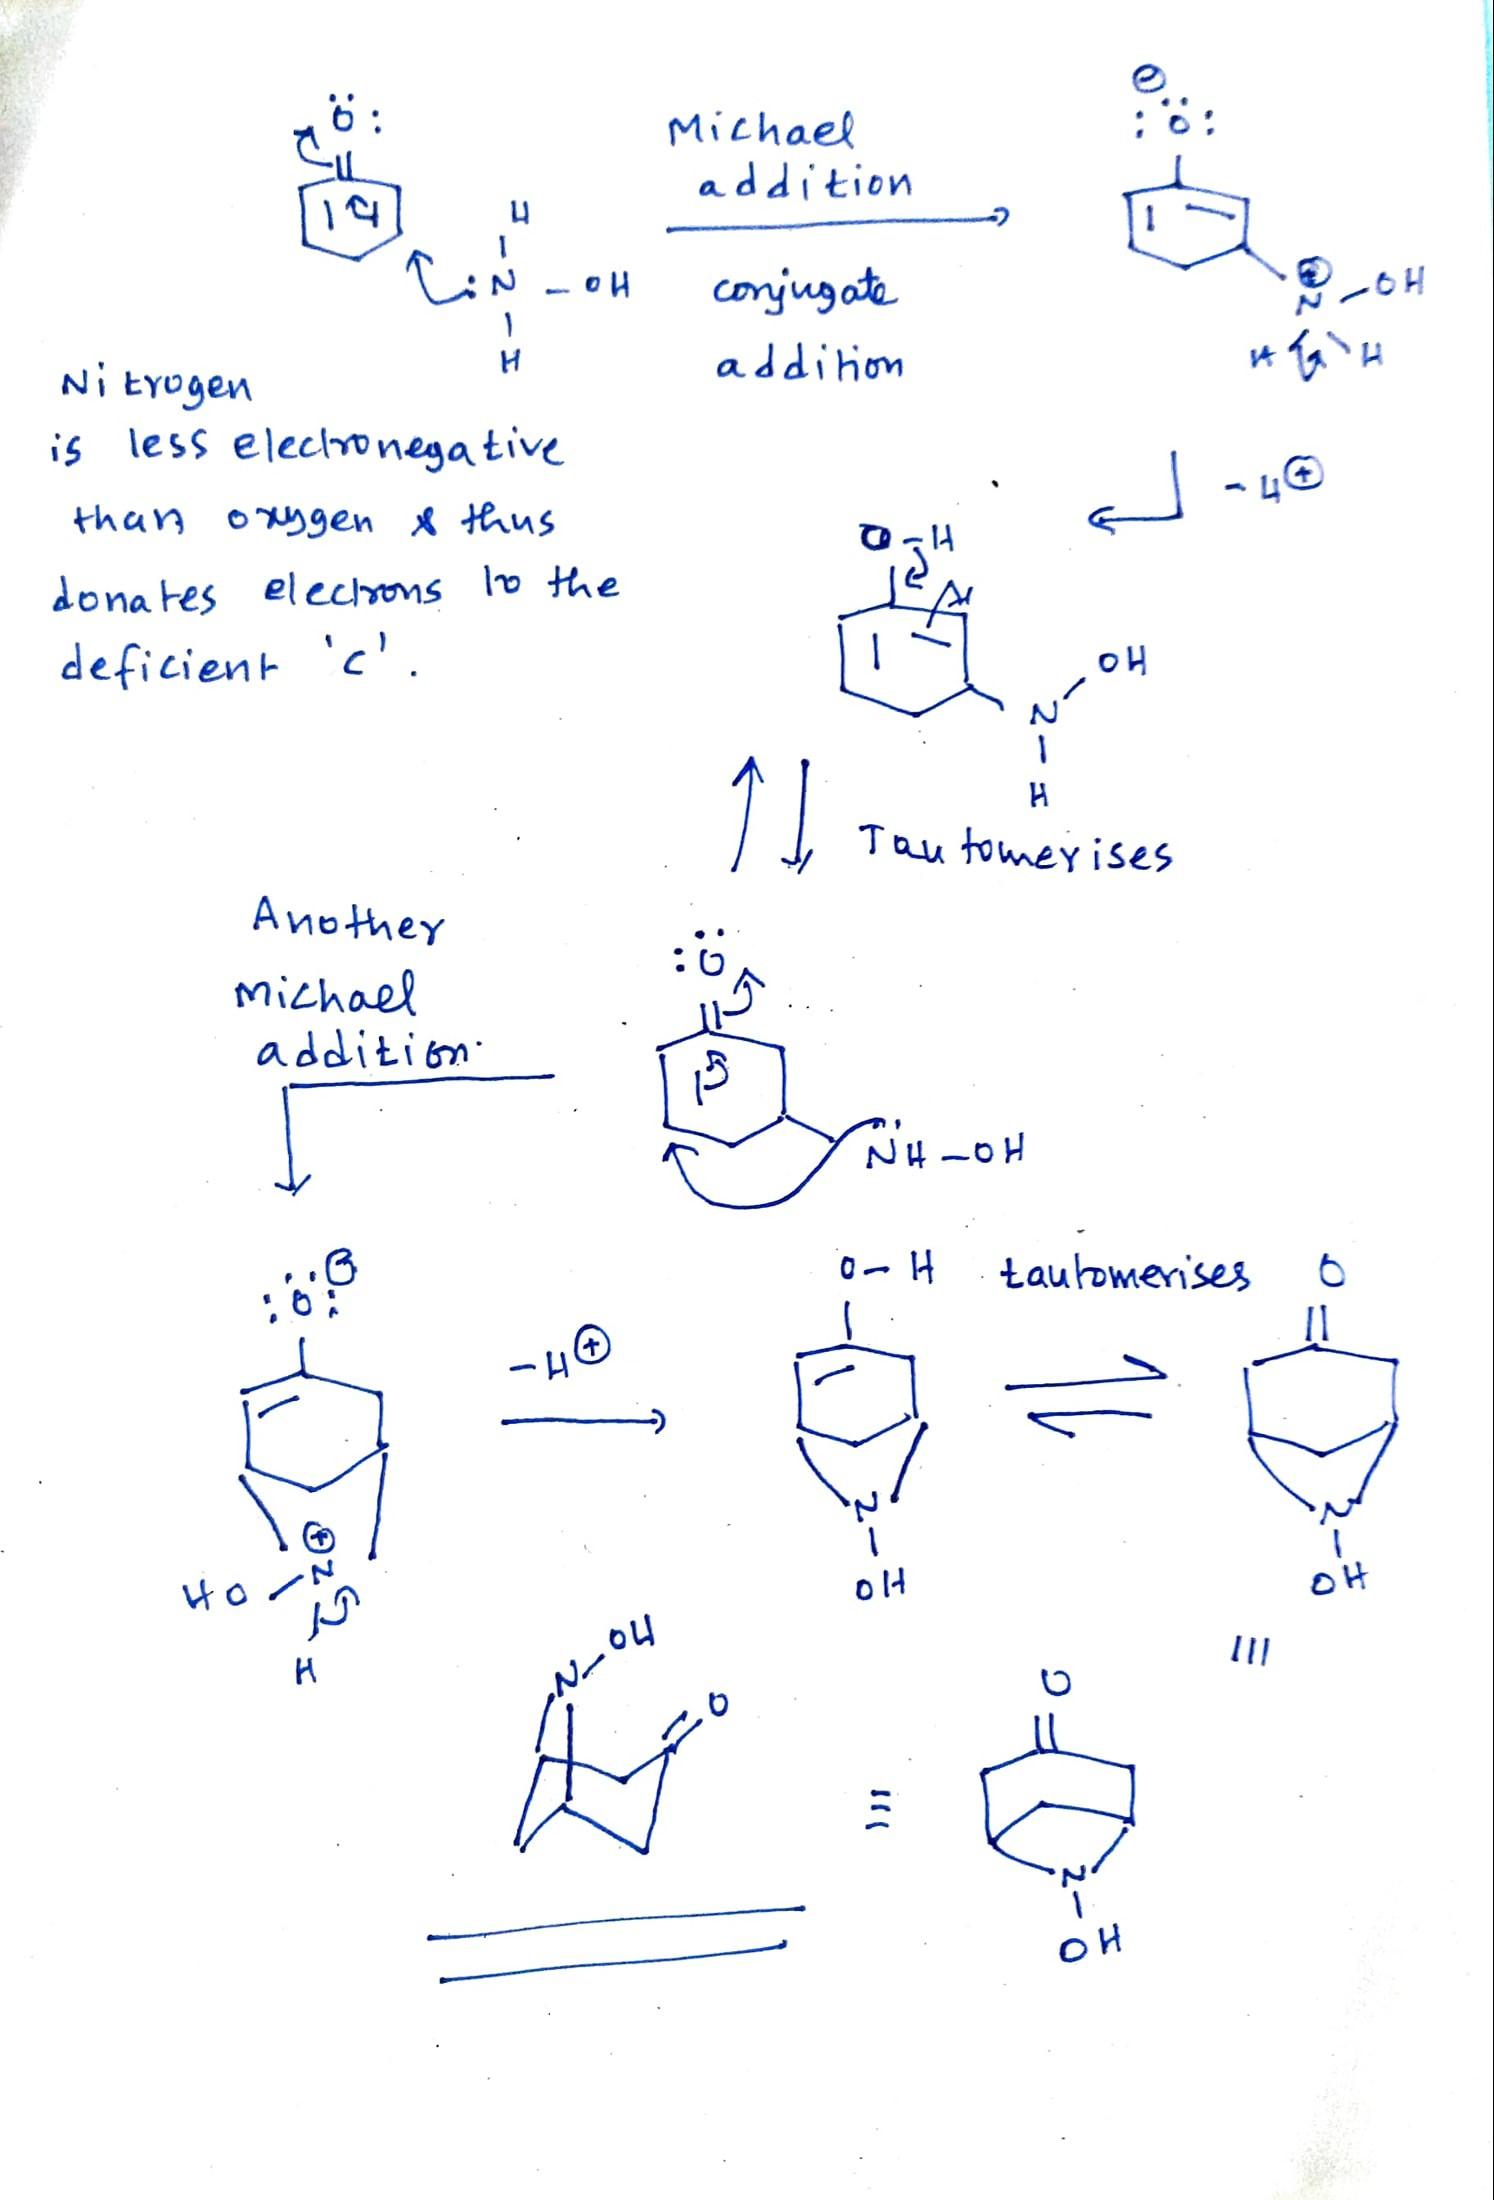 :Ö:
Michael
addition
⊖
:Ö:
H
:N - OH
H
conjugate
addition
⊕
N - OH
H H
Nitrogen
is less electronegative
than oxygen & thus
donates electrons to the
deficient 'c'.
- H⊕
O - H
OH
N
H
Tautomerises
Another
Michael
addition.
:Ö
N̈H - OH
:Ö:
- H⊕
O - H
tautomerises
O
⊕
HO - N
H
N
OH
N
OH
N - OH
O
≡
O
N
OH